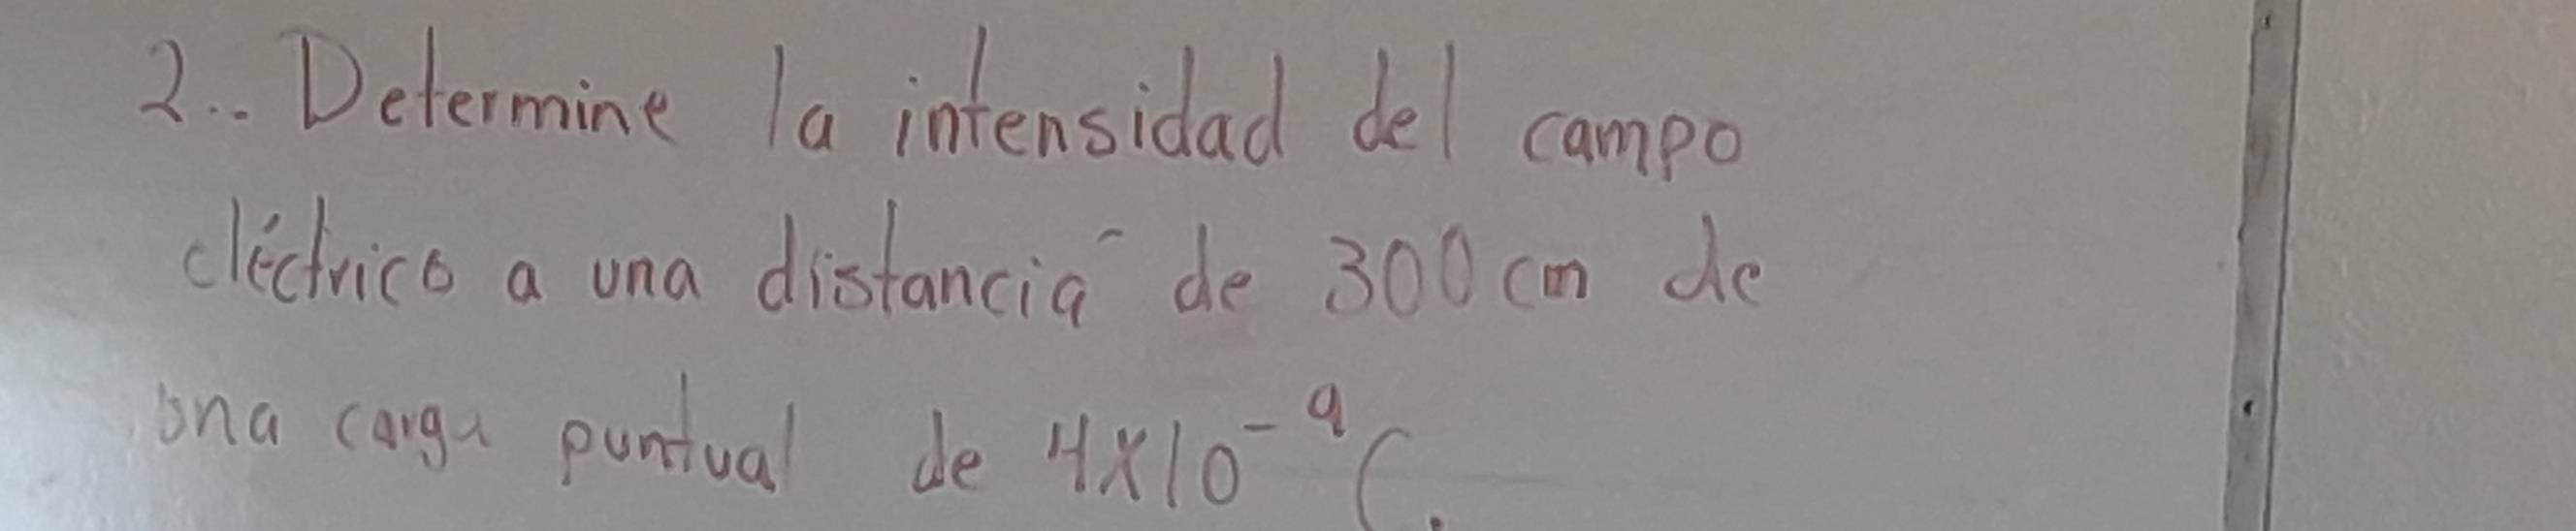 2.. Determine la intensidad del campo
eléctrico a una distancia de 300 cm de
una carga puntual de 4x10⁻⁹C.